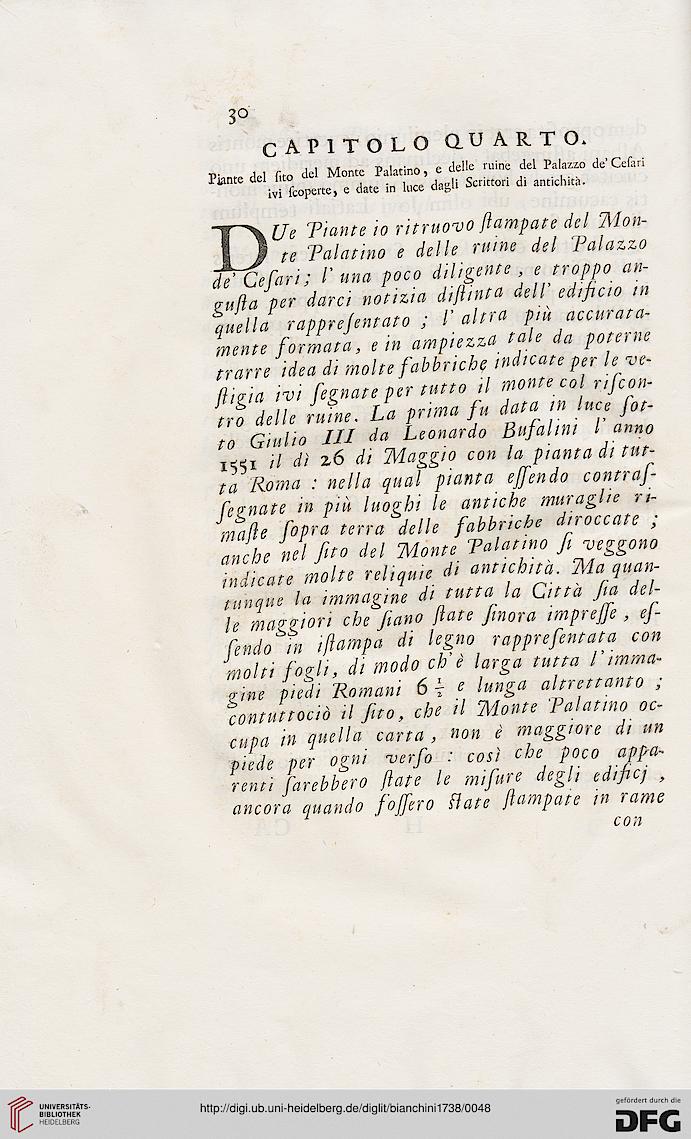 30
CAPITOLO QUARTO.
Piante del ſito del Monte Palatino, e delle ruine del Palazzo de' Ceſari
ivi ſcoperte, e date in luce dagli Scrittori di antichità.
DUe Piante io ritruovo ſtampate del Mon-
te Palatino e delle ruine del Palazzo
de' Ceſari; l' una poco diligente, e troppo an-
guſta per darci notizia diſtinta dell' edificio in
quella rappreſentato ; l' altra più accurata-
mente formata, e in ampiezza tale da poterne
trarre idea di molte fabbriche indicate per le ve-
ſtigia ivi ſegnate per tutto il monte col riſcon-
tro delle ruine. La prima fu data in luce ſot-
to Giulio III da Leonardo Bufalini l' anno
1551 il dì 26 di Maggio con la pianta di tut-
ta Roma : nella qual pianta eſſendo contraſ-
ſegnate in più luoghi le antiche muraglie ri-
maſte ſopra terra delle fabbriche diroccate ;
anche nel ſito del Monte Palatino ſi veggono
indicate molte reliquie di antichità. Ma quan-
tunque la immagine di tutta la Città ſia del-
le maggiori che ſiano ſtate ſinora impreſſe, eſ-
ſendo in iſtampa di legno rappreſentata con
molti fogli, di modo ch' è larga tutta l' imma-
gine piedi Romani 6 1/2 e lunga altrettanto ;
contuttociò il ſito, che il Monte Palatino oc-
cupa in quella carta, non è maggiore di un
piede per ogni verſo : così che poco appa-
renti ſarebbero ſtate le miſure degli edificj ,
ancora quando foſſero ſtate ſtampate in rame
con
UNIVERSITÄTS-
BIBLIOTHEK
HEIDELBERG
http://digi.ub.uni-heidelberg.de/diglit/bianchini1738/0048
gefördert durch die
DFG